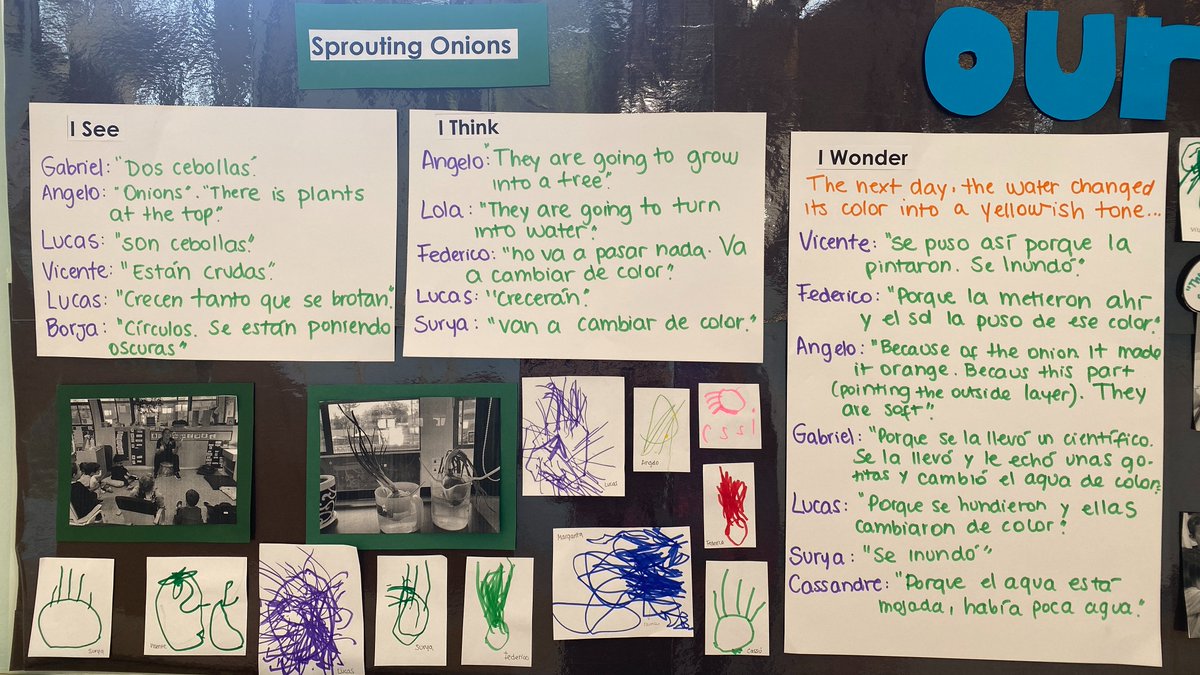 Sprouting Onions
our
I See
Gabriel: "Dos cebollas".
Angelo: "Onions". "There is plants
at the top".
Lucas: "son cebollas."
Vicente: "Están crudas".
Lucas: "Crecen tanto que se brotan".
Borja: "Círculos. Se están poniendo
oscuras"
I Think
Angelo "They are going to grow
into a tree".
Lola: "They are going to turn
into water".
Federico: "no va a pasar nada. Va
a cambiar de color."
Lucas: "Crecerán".
Surya: "van a cambiar de color."
I Wonder
The next day, the water changed
its color into a yellowish tone...
Vicente: "Se puso así porque la
pintaron. Se Inundó".
Federico: "Porque la metieron ahí
y el sol la puso de ese color."
Angelo: "Because of the onion it made
it orange. Becaus this part
(pointing the outside layer). They
are soft".
Gabriel: "Porque se la llevó un científico.
Se la llevó y le echó unas go-
titas y cambió el agua de color.
Lucas: "Porque se hundieron y ellas
cambiaron de color."
Surya: "Se inundó"
Cassandre: "Porque el agua está
mojada, había poca agua."
Lucas
Angelo
Federico
Margarita
Surya
Vicente
Lucas
Surya
Federico
Cassú